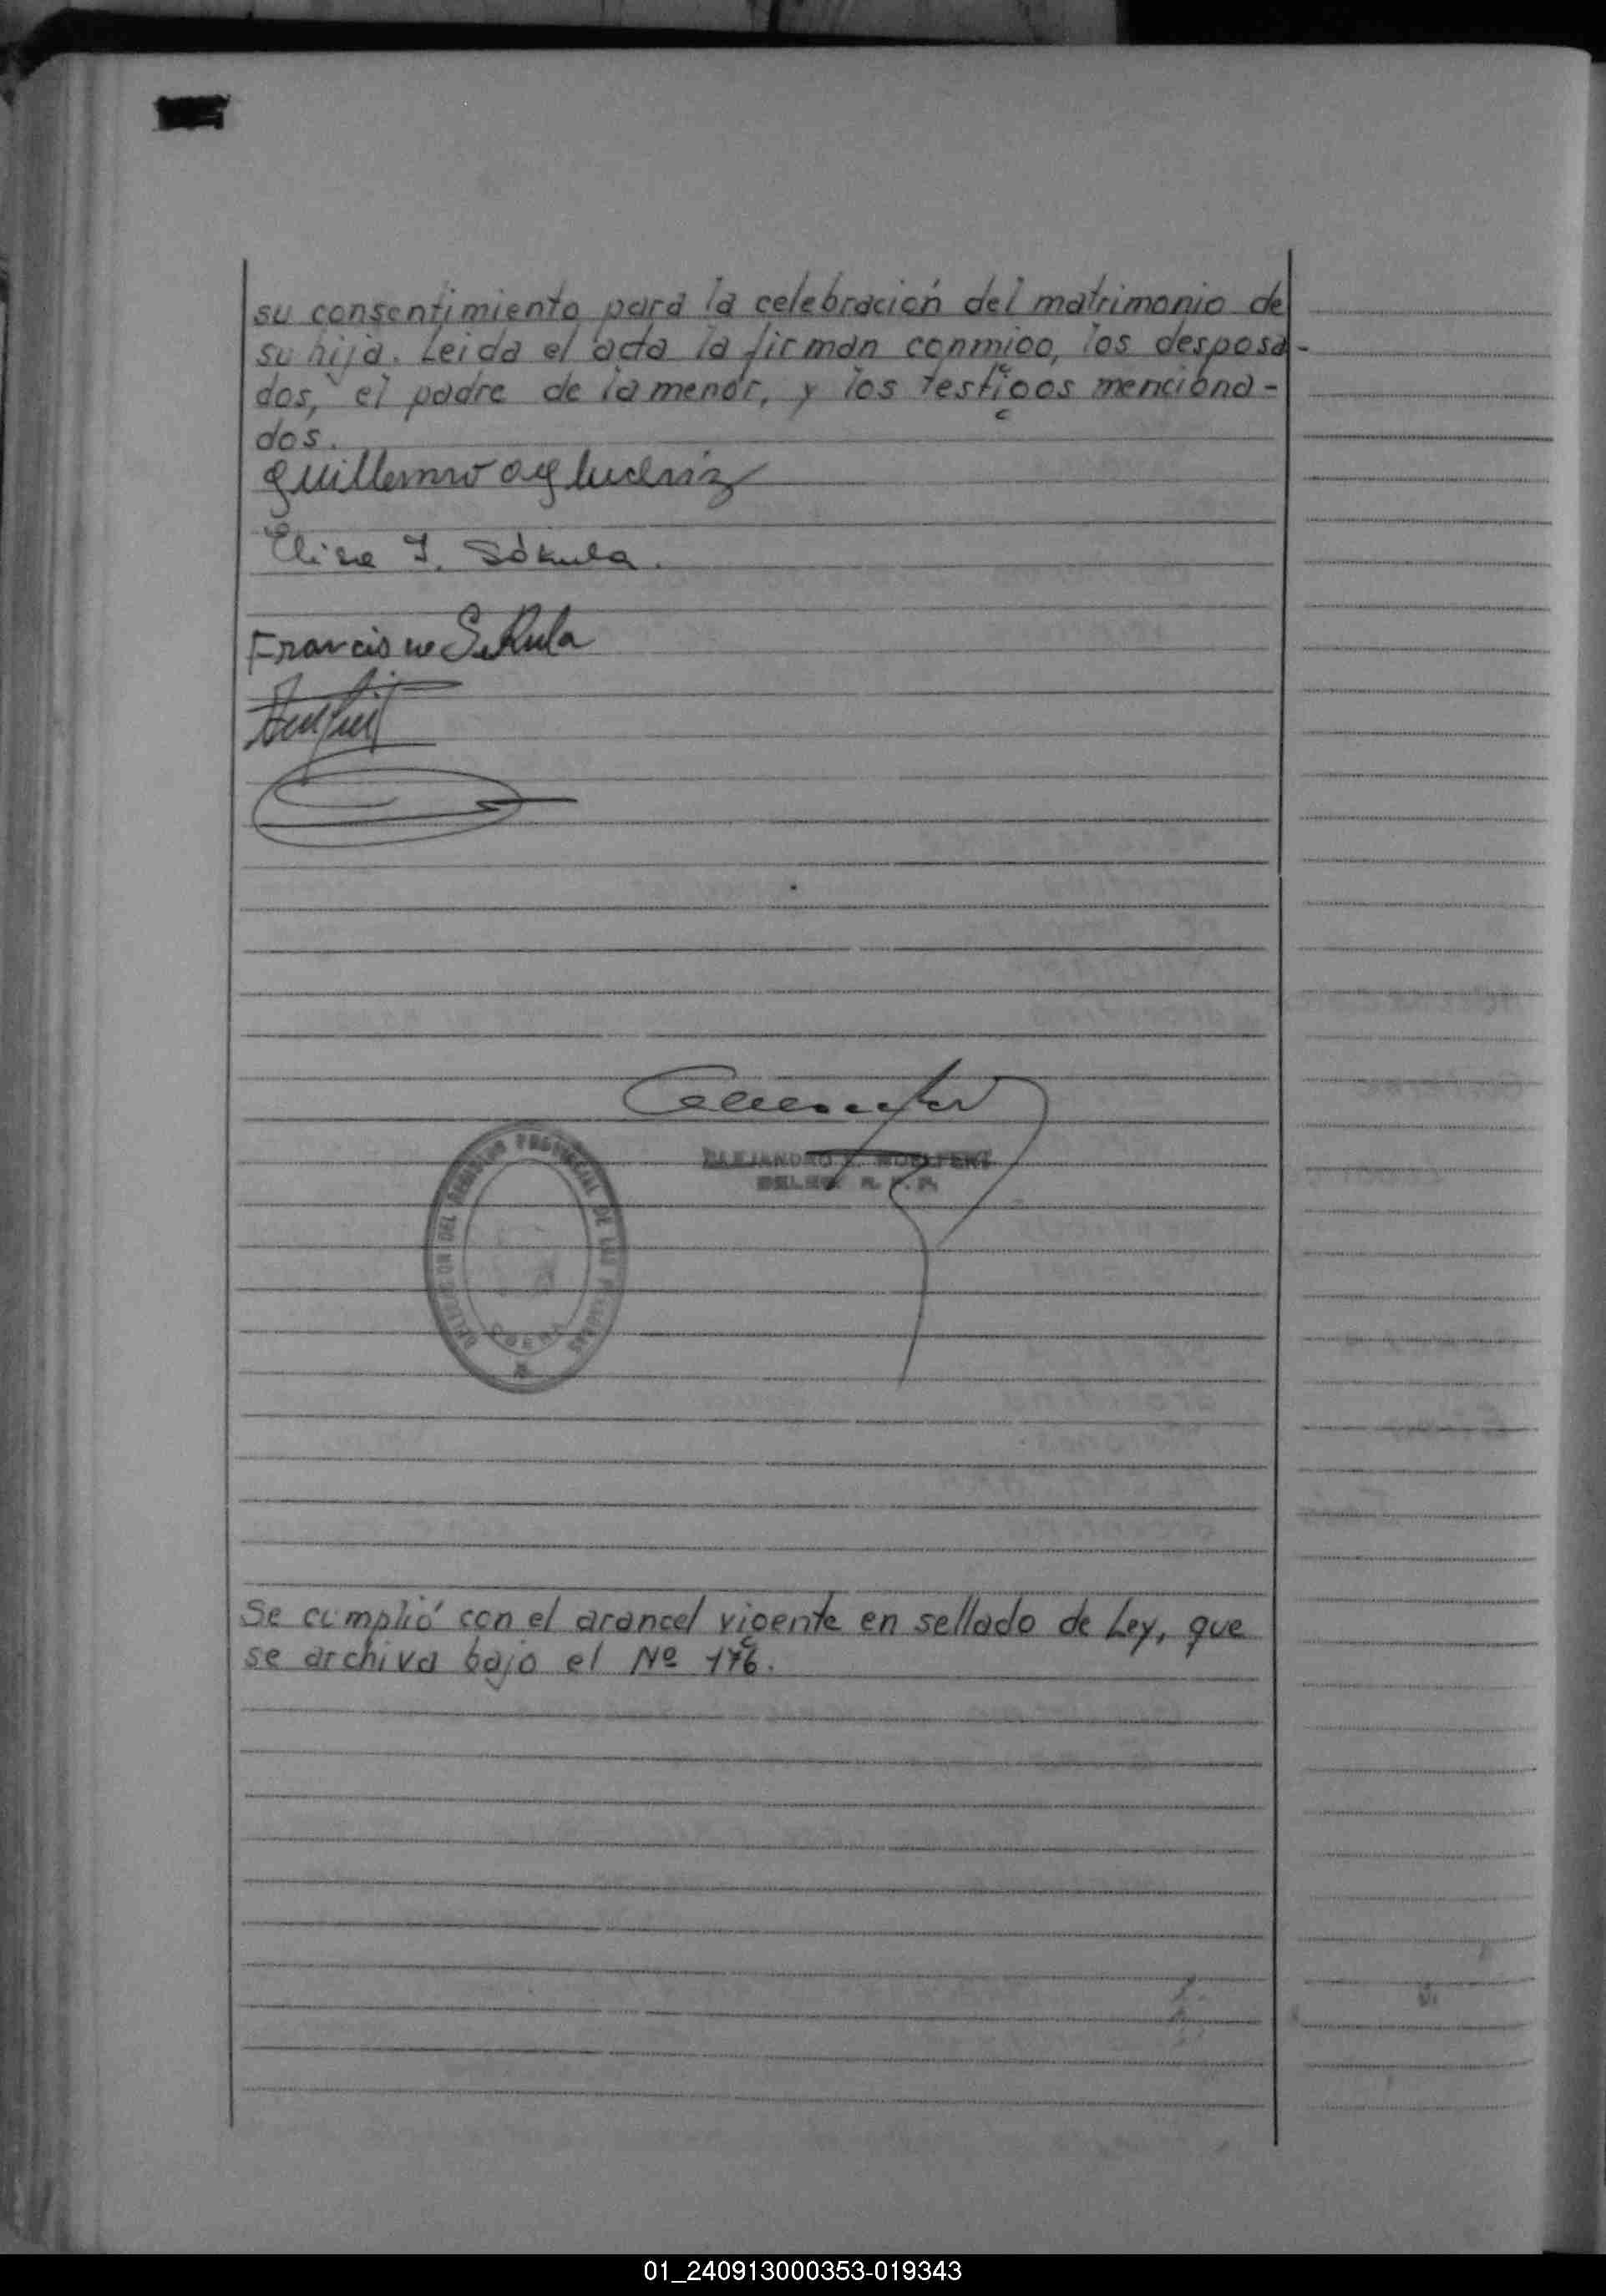 su consentimiento para la celebración del matrimonio de
su hija. Leida el acta la firman conmigo, los desposa-
dos, el padre de la menor, y los testigos menciona-
dos.
Guillermo
Elisa I. Sókula.
Francisco Sokula
ALEJANDRO
DELEG. R. P. P.
DELEGACION DEL REGISTRO PROVINCIAL DE LAS PERSONAS
OBERA
Se cumplió con el arancel vigente en sellado de Ley, que
se archiva bajo el Nº 176.
01_240913000353-019343